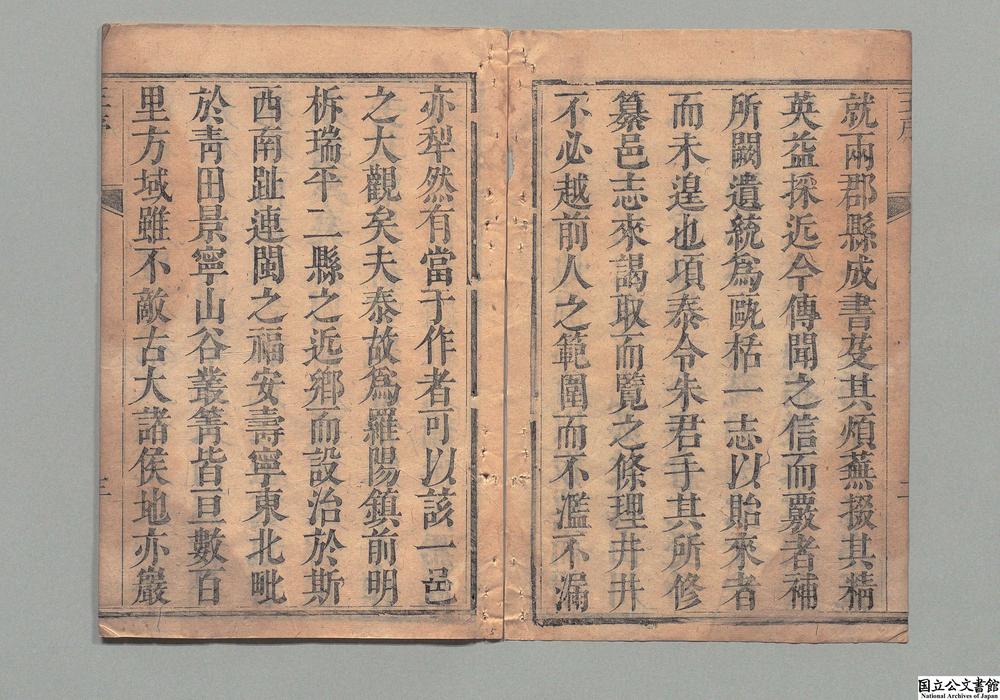 就兩郡縣成書芟其煩蕪掇其精
英益採近今傳聞之信而覈者補
所闕遺統為甌栝一志以貽來者
而未遑也項泰令朱君手其所修
纂邑志來謁取而覽之條理井井
不必越前人之範圍而不濫不漏
亦犁然有當于作者可以該一邑
之大觀矣夫泰故為羅陽鎮前明
柝瑞平二縣之近鄉而設治於斯
西南趾連閩之福安壽寧東北毗
於青田景寧山谷叢箐皆亘數百
里方域雖不敵古大諸侯地亦巖
国立公文書館
National Archives of Japan